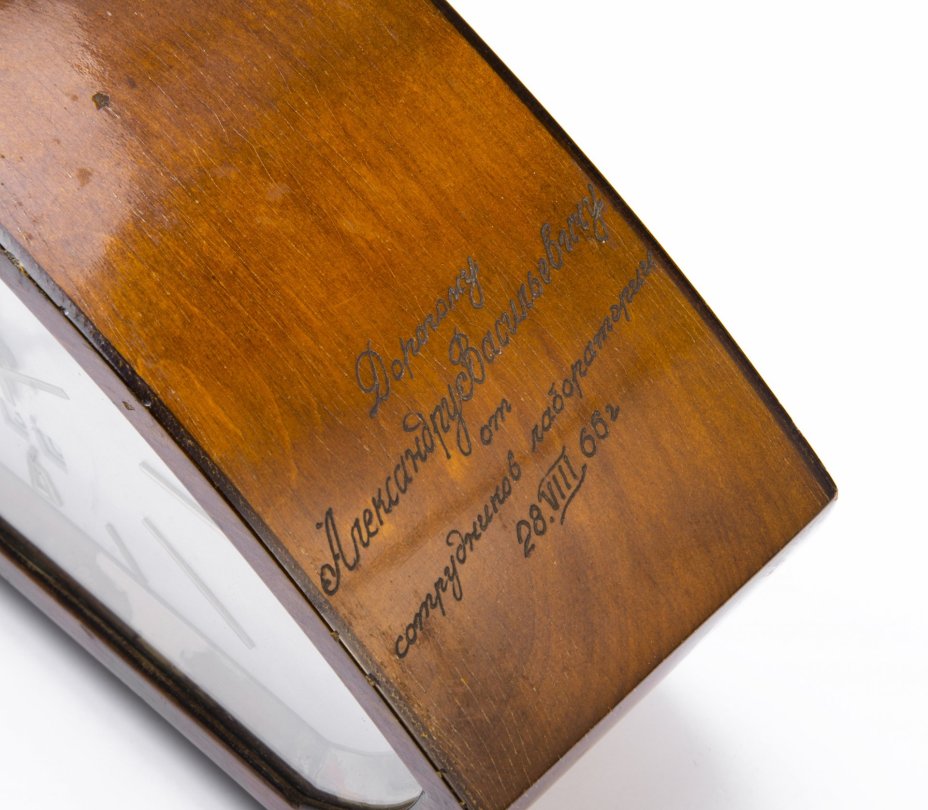 Дорогому
Александру Васильевичу
от
сотрудников лаборатории
28.VIII 66г